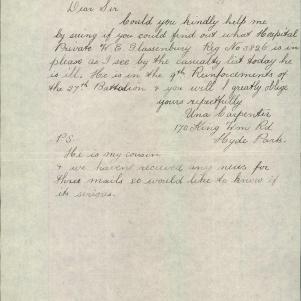 Dear Sir
Could you kindly help me
by seeing if you could find out what Hospital
Private W. E. Glasenbury Reg No 3826 is in
please as I see by the casualty list today he
is ill. He is in the 9th Reinforcements of
the 27th Battalion & you will greatly oblige
yours respectfully
Una Carpenter
170 King Wm Rd
Hyde Park.
P.S.
He is my cousin
& we havent recieved any news for
three mails so would like to know if
its serious.